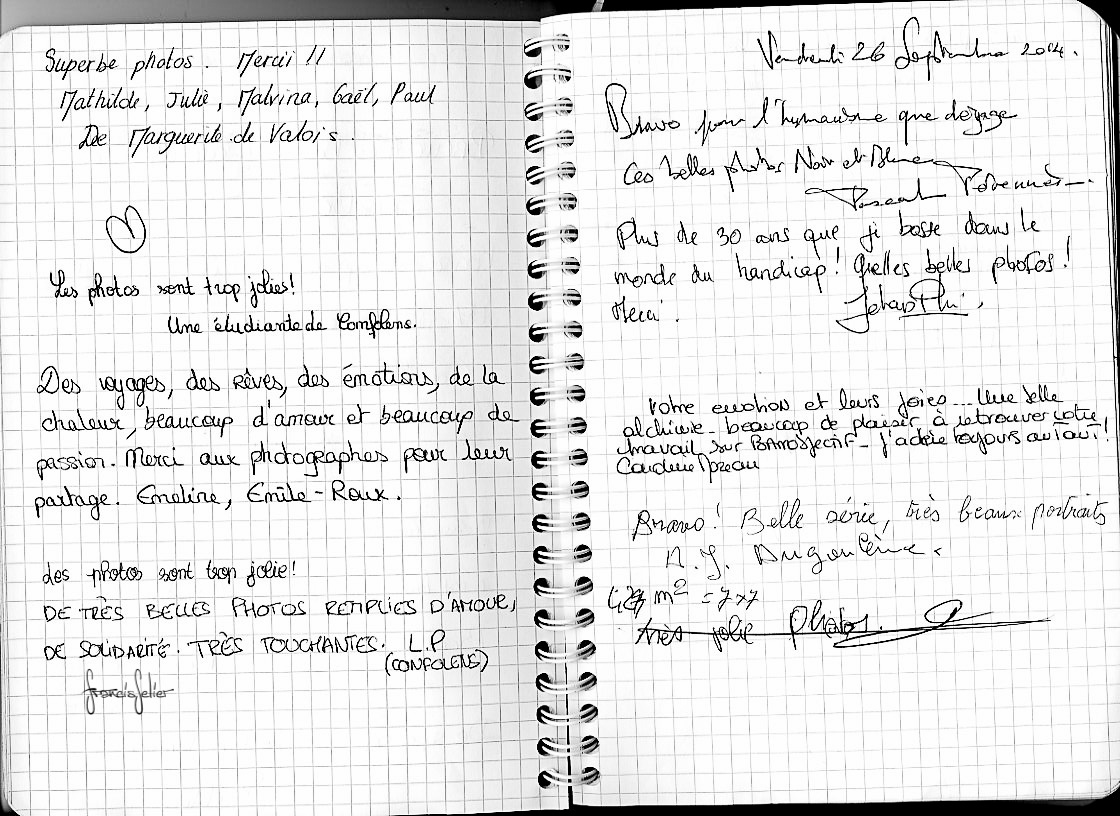 Superbe photos. Merçii !!
Mathilde, Julie, Malvina, Gaël, Paul
De Marguerite de Valois.
Les photos sont trop jolies!
Une étudiante de Confolens.
Des voyages, des rêves, des émotions, de la
chaleur, beaucoup d'amour et beaucoup de
passion. Merci aux photographes pour leur
partage. Emeline, Emile-Roux.
des photos sont trop jolie!
DE TRÈS BELLES PHOTOS REMPLIES D'AMOUR,
DE SOLIDARITÉ. TRÈS TOUCHANTES. L.P
(CONFOLENS)
francis Selier
Vendredi 26 Septembre 2014.
Bravo pour l'humanisme que dégage
Ces belles photos Noir et Blanc
Pascal
Plus de 30 ans que je bosse dans le
monde du handicap! Quelles belles photos!
Merci.
Votre emotion et leurs joies... Une belle
alchimie - beaucoup de plaisir à retrouver votre
travail sur BAMOBJECTIF - j'adore toujours autant!
Caroline
Bravo! Belle série, très beaux portraits
Angoulême.
m² = 7x7
très jolie photos.